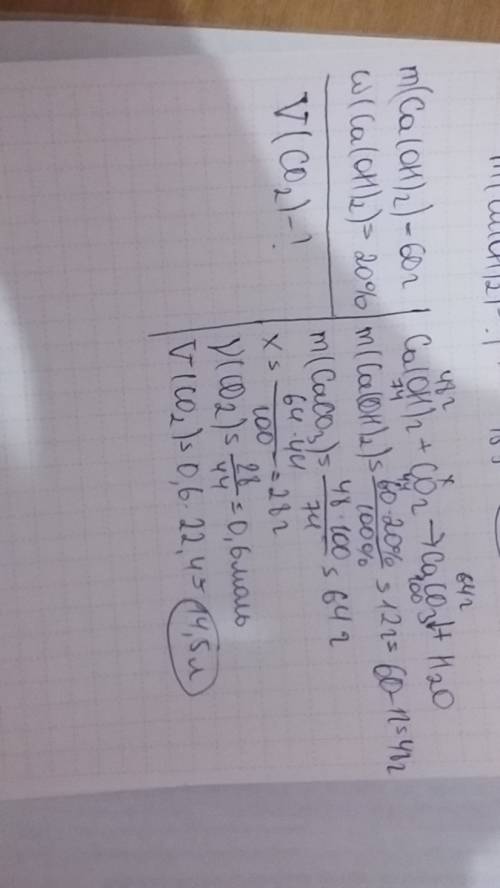 m(Ca(OH)2) - 60г
w(Ca(OH)2) = 20%
V(CO2) - ?
48г x 64г
Ca(OH)2 + CO2 → CaCO3↓ + H2O
74 44 100
m(Ca(OH)2) = 60·20% / 100% = 12г = 60-12 = 48г
m(CaCO3) = 48·100 / 74 = 64г
x = 64·44 / 100 = 28г
ν(CO2) = 28 / 44 = 0,6моль
V(CO2) = 0,6·22,4 = 14,5л